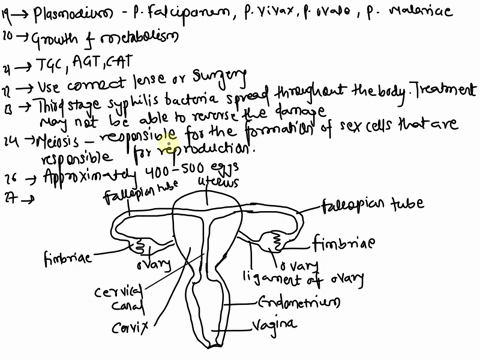 19→ Plasmodium - P. falciparum, P. vivax, P. ovale, P. Malariae
20→ Growth & metabolism
21→ TGC, AGT, CAT
22→ Use correct lense or Surgery
23→ Third stage syphilis bacteria spread throughout the body. Treatment
may not be able to reverse the damage
24→ Meiosis - responsible for the formation of sex cells that are
responsible for reproduction.
26→ Approximately 400-500 eggs
27→
fallopian tube
uterus
fallopian tube
fimbriae
ovary
fimbriae
ovary
ligament of ovary
cervical
canal
Endometrium
cervix
vagina